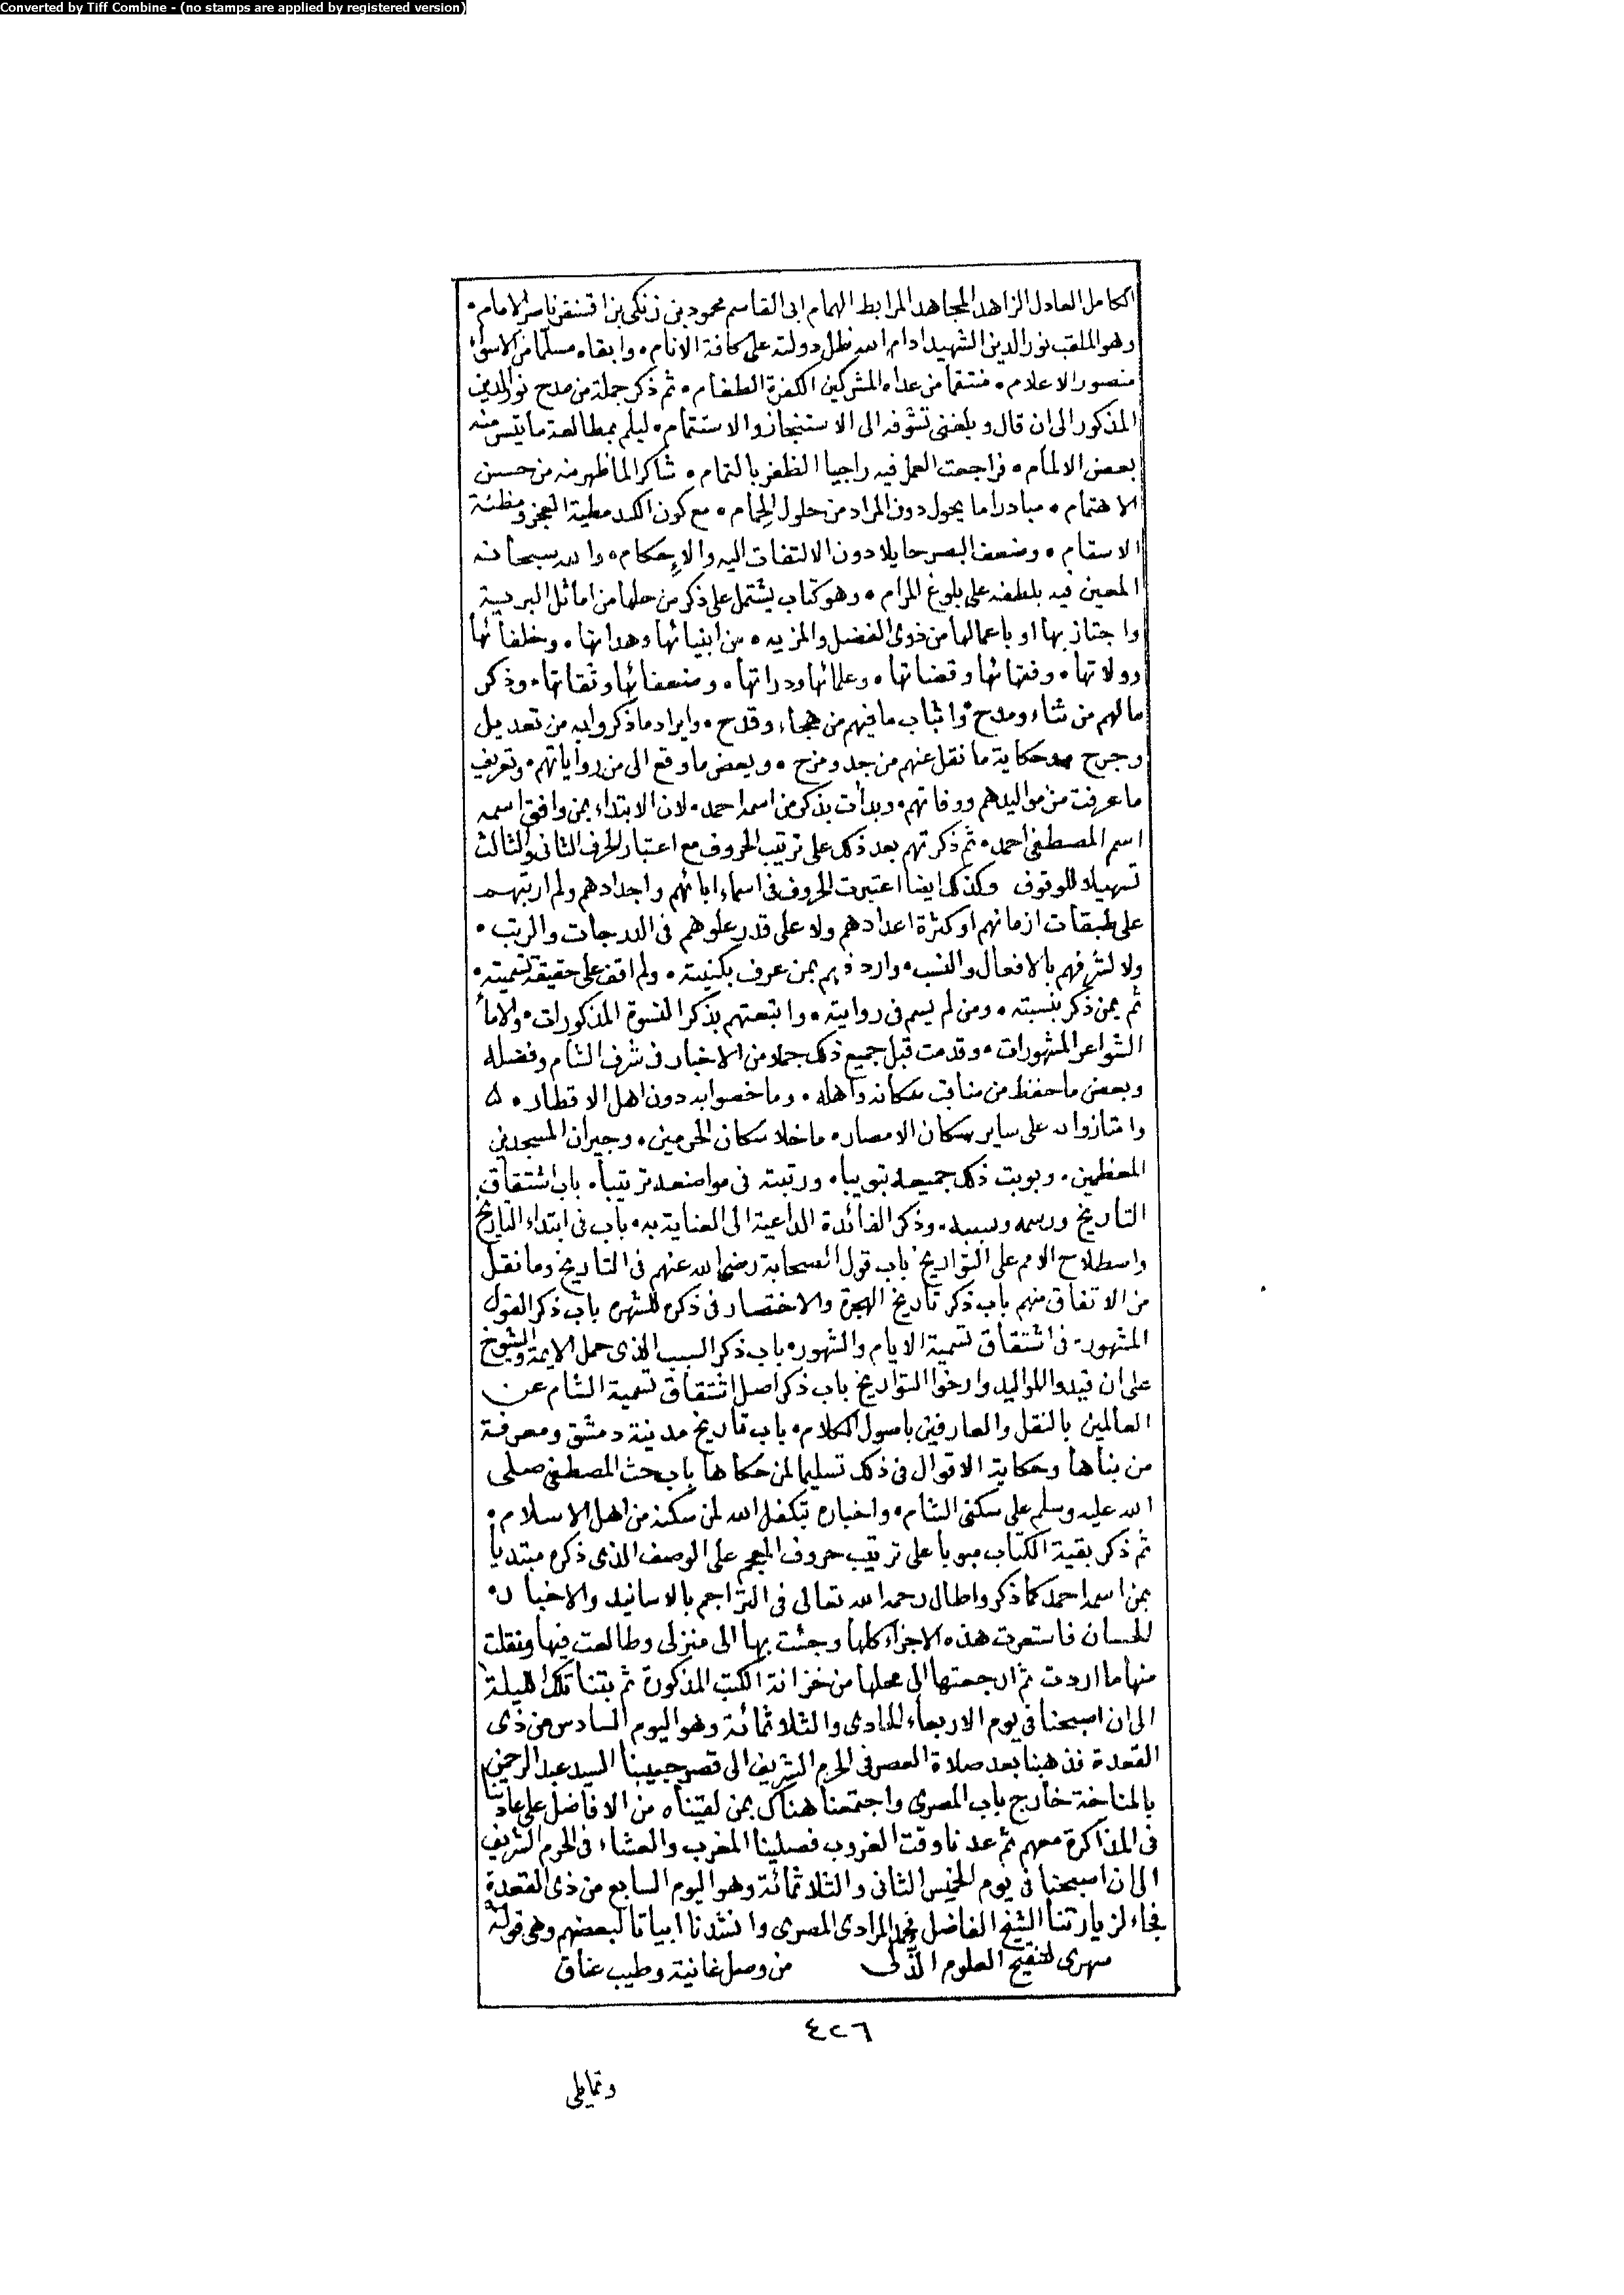 Converted by Tiff Combine - (no stamps are applied by registered version)
الكامل العادل الزاهد المجاهد المرابط الهمام ابى القاسم محمود بن زنكى بن اقسنقر ناصر الامام •
وهو الملقب نور الدين الشهيد ادام الله ظل دولته على كافة الانام • وابقاه مسلما من الاسواء
منصور الاعلام • منتقما من عداه المشركين الكفرة الطغام • ثم ذكر جملة من مدح نور الدين
المذكور الى ان قال وبلغنى تشوفه الى الاستنجاز والاستتمام • ليلم بمطالعة ما يتيسر منه
بعض الالمام • فراجعت العمل فيه راجيا الظفر بالتمام • شاكرا لما ظهر منه من حسن
الاهتمام • مبادرا ما يحول دون المراد من حلول الحمام • مع كون الكبر مطية العجز ومظنة
الاسقام • وضعف البصر حايلا دون الالتفات اليه والاحكام • والله سبحانه
المعين فيه بلطفه على بلوغ المرام • وهو كتاب يشتمل على ذكر من حلها من اماثل البرية
واجتاز بها او باعمالها من ذوى الفضل والمزيه • من انبيائها وهداتها • وخلفائها
وولاتها • وفقهائها وقضاتها • وعلمائها ودراتها • وضعفائها وثقاتها • وذكر
مالهم من ثناء ومدح • واثبات ما فيهم من هجاء وقدح • وايراد ما ذكروا به من تعديل
وجرح • وحكاية ما نقل عنهم من جد ومزح • وبعض ما وقع الى من رواياتهم • وتعريف
ما عرفت من مواليدهم ووفاتهم • وبدأت بذكر من اسمه احمد • لان الابتداء بمن وافق اسمه
اسم المصطفى احمد • ثم ذكرتهم بعد ذلك على ترتيب الحروف مع اعتبار الحرف الثانى والثالث
تسهيلا للوقوف وكذلك ايضا اعتبرت الحروف فى اسماء ابائهم واجدادهم ولم ارتبهم
على طبقات ازمانهم او كثرة اعدادهم ولا على قدر علوهم فى الدرجات والرتب •
ولا لشرفهم بالافعال والنسب • واردفتهم بمن عرف بكنيته • ولم اقف على حقيقة تسميته •
ثم بمن ذكر بنسبته • ومن لم يسم فى روايته • واتبعتهم بذكر النسوة المذكورات • والاماء
الشواعر المشهورات • وقدمت قبل جميع ذلك جملة من الاخبار فى شرف الشام وفضله
وبعض ما حفظ من مناقب سكانه واهله • وما خصوا به دون اهل الاقطار •
وامتازوا به على ساير سكان الامصار • ما خلا سكان الحرمين • وجيران المسجدين
المعظمين • وبوبت ذلك جميعه تبويبا • ورتبته فى مواضعه ترتيبا • باب اشتقاق
التاريخ ورسمه وسببه • وذكر الفائدة الداعية الى العناية به • باب فى ابتداء التاريخ
واصطلاح الامم على التواريخ باب قول الصحابة رضى الله عنهم فى التاريخ وما نقل
من الاتفاق منهم باب ذكر تاريخ الهجرة والاختصار فى ذكره للشهره باب ذكر القول
المشهور فى اشتقاق تسمية الايام والشهور • باب ذكر السبب الذى حمل الايمة والشيوخ
على ان قيدوا المواليد وارخوا التواريخ باب ذكر اصل اشتقاق تسمية الشام عن
العالمين بالنقل والعارفين باصول الكلام • باب تاريخ مدينة دمشق ومعرفة
من بناها وحكاية الاقوال فى ذلك تسليما لمن حكاها باب حث المصطفى صلى
الله عليه وسلم على سكنى الشام • واخباره بتكفل الله لمن سكنه من اهل الاسلام •
ثم ذكر بقية الكتاب مبوبا على ترتيب حروف المعجم على الوصف الذى ذكره مبتديا
بمن اسمه احمد كما ذكر واطال رحمه الله تعالى فى التراجم بالاسانيد والاخبار
الحسان فاستعرت هذه الاجزاء كلها وجئت بها الى منزلى وطالعت فيها ونقلت
منها ما اردت ثم ارجعتها الى محلها من خزانة الكتب المذكورة ثم بتنا تلك الليلة
الى ان اصبحنا فى يوم الاربعاء الحادى والثلاثمائة وهو اليوم السادس من ذى
القعدة فذهبنا بعد صلاة العصر فى الحرم الشريف الى قصر حبيبنا السيد عبد الرحمن
بالمناخة خارج باب المصرى واجتمعنا هناك بمن لقيناه من الافاضل على عادتنا
فى المذاكرة معهم ثم عدنا وقت الغروب فصلينا المغرب والعشاء فى الحرم الشريف
الى ان اصبحنا فى يوم الخميس الثانى والثلاثمائة وهو اليوم السابع من ذى القعدة
فجاء لزيارتنا الشيخ الفاضل محمد المرادى المصرى وانشدنا ابياتا لبعضهم وهى قوله
سهرى لتنقيح العلوم الذ لى من وصل غانية وطيب عناق
٤٢٦
وتمايلى